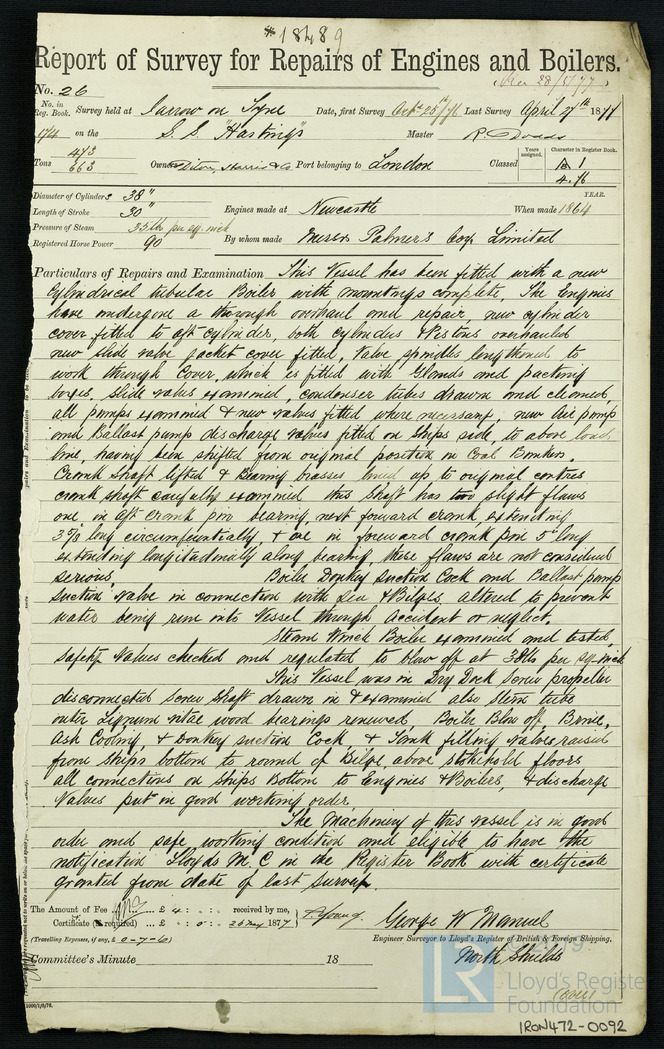 *18489
Report of Survey for Repairs of Engines and Boilers.
No. 26
(Rec 28/5/77)
No. in Reg. Book. Survey held at Jarrow on Tyne Date, first Survey Octr 25th/76 Last Survey April 7th 1877
174 on the S.S. "Hastings" Master R Dodds
Tons 473 663 Owners Dixon, Harris & Co Port belonging to London
Classed Years assigned. Character in Register Book. A 1 4.76
Diameter of Cylinders 38"
Length of Stroke 30" Engines made at Newcastle When made YEAR. 1864
Pressure of Steam 35 lbs per sq. inch
Registered Horse Power 90 By whom made Messrs Palmer's Coy Limited
Particulars of Repairs and Examination This Vessel has been fitted with a new
Cylindrical tubular Boiler with mountings complete The Engines
have undergone a through overhaul and repair, new cylinder
cover fitted to aft cylinder, both cylinders & Pistons overhauled
new slide valve jacket cover fitted, Valve spindles lengthened to
work through Cover, which is fitted with Glands and packing
boxes, slide valves examined, condenser tubes drawn and cleaned,
all pumps examined & new valves fitted where necessary, new Air pump
and Ballast pump discharge valves fitted on ships side, to above load
line, having been shifted from original position in Coal Bunkers.
Crank Shaft lifted & Bearing brasses lined up to original centres
crank shaft carefully examined this shaft has two slight flaws
one in aft crank pin bearing, next forward crank, extending
long circumferentially, & one in forward crank pin 5" long
extending longitudinally along bearing, these flaws are not considered
serious. Boiler Donkey Suction Cock and Ballast pump
suction valve in connection with Sea & Bilges altered to prevent
water being run into Vessel through accident or neglect.
Steam Winch Boiler examined and tested,
safety Valves checked and regulated to blow off at 38 lbs per sq-inch
This Vessel was in Dry Dock Screw propeller
disconnected screw shaft drawn in & examined also Stern tube
outer Lignum vitae wood bearings renewed, Boiler Blow off, Brine,
Ash Cooling, & Donkey suction Cock & Tank filling valves, raised
from Ships bottom to round of Bilge, above stokehold floors
all connections on ships Bottom to Engines & Boilers, & discharge
Valves put in good working order
The Machinery of this vessel is in good
order and safe working condition and eligible to have the
notification Lloyds M.C. in the Register Book with certificate
granted from date of last survey
The Amount of Fee ... £ 4 : - : - received by me,
Certificate (if required) .. £ - : 0 : - 26 May 1877 T. Young. George W Manuel
(Travelling Expenses, if any, £ 0-7-6) Engineer Surveyor to Lloyd's Register of British & Foreign Shipping.
Committee's Minute 18 North Shields
(over)
LR
Lloyd's Register
Foundation
IRON472-0092